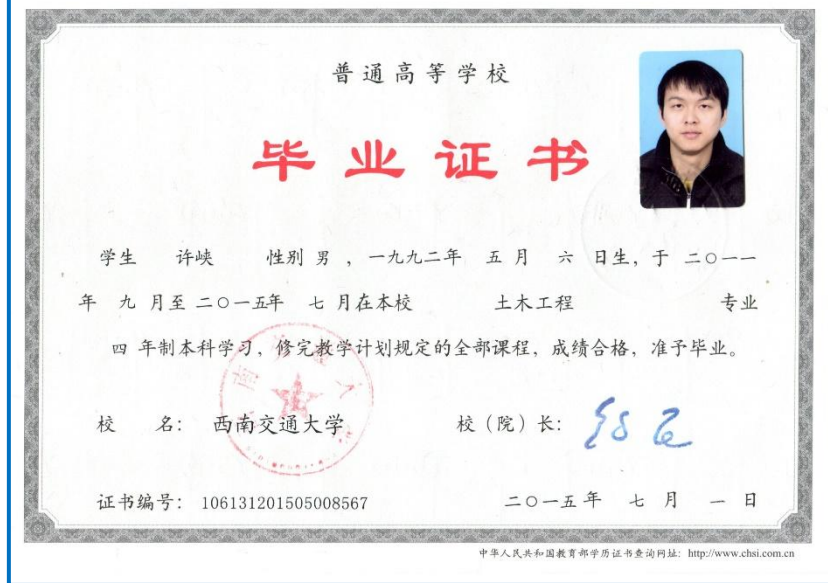 普通高等学校
毕业证书
学生 许峡 性别 男 ，一九九二年 五 月 六 日生，于 二〇一一
年 九 月至 二〇一五年 七 月在本校 土木工程 专业
四 年制本科学习，修完教学计划规定的全部课程，成绩合格，准予毕业。
校 名： 西南交通大学 校（院）长：
证书编号： 106131201505008567 二〇一五年 七 月 一 日
中华人民共和国教育部学历证书查询网址：http://www.chsi.com.cn